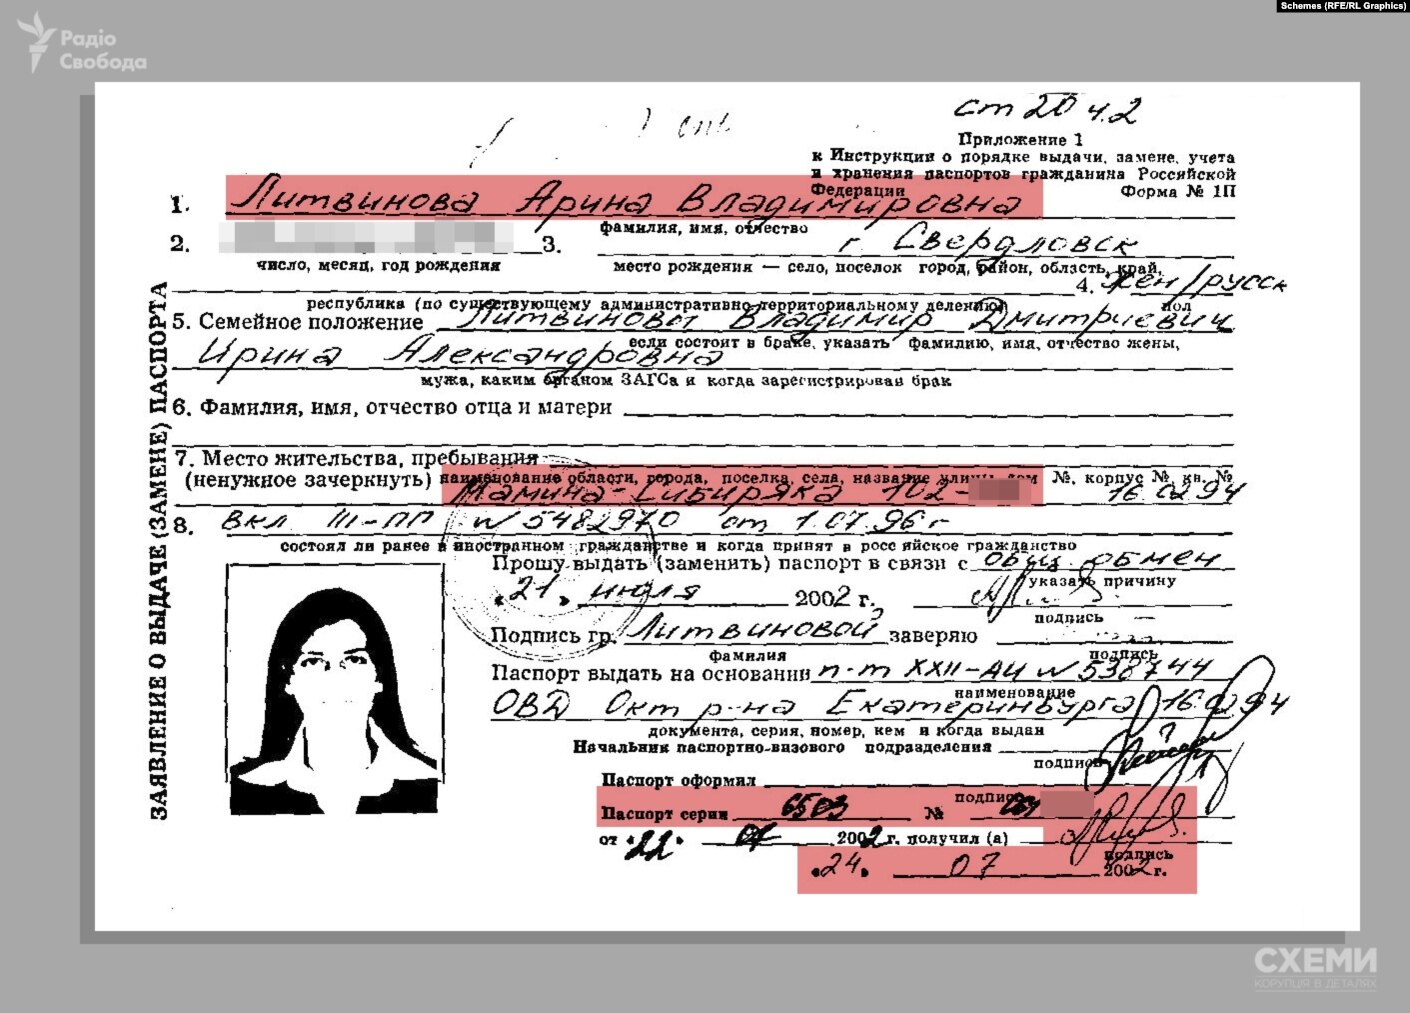 Schemes (RFE/RL Graphics)
Радіо
Свобода
ст 20 ч.2
Приложение 1
к Инструкции о порядке выдачи, замене, учета
и хранения паспортов гражданина Российской
Федерации Форма № 1П
1. Литвинова Арина Владимировна
фамилия, имя, отчество
2. 3. г. Свердловск
число, месяц, год рождения место рождения — село, поселок город, район, область, край,
4. жен/русск
республика (по существующему административно-территориальному делению) пол
5. Семейное положение Литвиновы Владимир Дмитриевич
если состоит в браке, указать фамилию, имя, отчество жены,
Ирина Александровна
мужа, каким органом ЗАГСа и когда зарегистрирован брак
6. Фамилия, имя, отчество отца и матери
7. Место жительства, пребывания
(ненужное зачеркнуть) наименование области, города, поселка, села, название улицы, дом №, корпус №, кв. №
Мамина-Сибиряка 102- 16.02.94
8. Вкл III-ПП № 5482970 от 1.07.96г
состоял ли ранее в иностранном гражданстве и когда принят в российское гражданство
Прошу выдать (заменить) паспорт в связи с общ. обмен
указать причину
«21» июля 2002 г.
подпись
Подпись гр. Литвиновой заверяю
фамилия подпись
Паспорт выдать на основании п-т XXII-АИ № 538744
наименование
ОВД Окт р-на Екатеринбурга 16.02.94
документа, серия, номер, кем и когда выдан
Начальник паспортно-визового подразделения
подпись
Паспорт оформил
подпись
Паспорт серии 6503 №
от «22» 07 2002 г. получил (а)
подпись
«24» 07 2002 г.
ЗАЯВЛЕНИЕ О ВЫДАЧЕ (ЗАМЕНЕ) ПАСПОРТА
СХЕМИ
КОРУПЦІЯ В ДЕТАЛЯХ